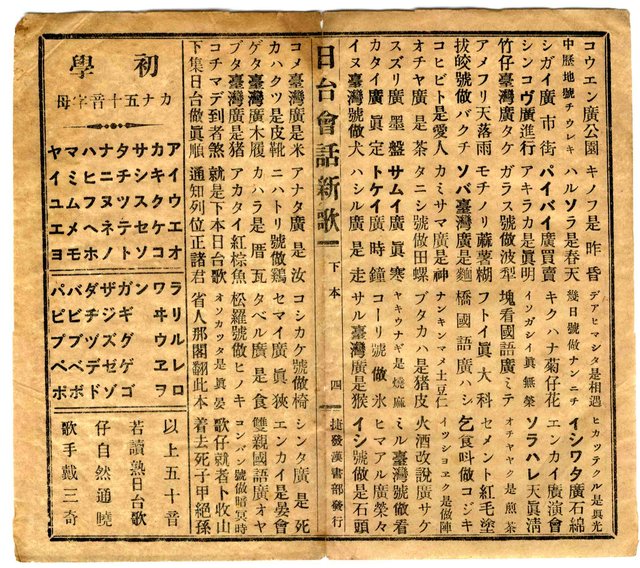 コウエン廣公園 キノフ是昨昏 デアヒマシタ是相遇 ヒカツテクル是眞光
中歴地號チウレキ ハルソラ是春天 幾日號做ナンニチ イシワタ廣石綿
シガイ廣市街 パイバイ廣買賣 キクハナ菊仔花 エンカイ廣演會
シンコヴ廣進行 アキラカ是眞明 イソガシイ眞無榮 ソラハレ天眞淸
竹仔臺灣廣タケ ガラス號做玻犁 塊看國語廣ミテ オチヤヤク是煎茶
アメフリ天落雨 モチノリ蔴薯糊 フトイ眞大科 セメント紅毛塗
拔皎號做バクチ ソバ臺灣廣是麵 橋國語廣ハシ 乞食叫做コジキ
コヒビト是愛人 カミサマ廣是神 ナンキンマメ土豆仁 イツショヱク是做陣
オチヤ廣是茶 タニシ號做田螺 ブタカハ是猪皮 火酒改說廣サケ
スズリ廣墨盤 サムイ廣眞寒 ヤキウナギ是燒麻 ミル臺灣號做看
カタイ廣眞定 トケイ廣時鐘 コーリ號做氷 ヒアル廣榮々
イヌ臺灣號做犬 ハシル廣是走 サル臺灣廣是猴 イシ號做是石頭
日台會話新歌 下本 四 捷發漢書部發行
コメ臺灣廣是米 アナタ廣是汝 コシカケ號做椅 シンタ廣是死
カハクツ是皮靴 ニハトリ號做鷄 セマイ廣眞狹 エンカイ是晏會
ゲタ臺灣廣木履 カハラ是厝瓦 タベル廣是食 雙親國語廣オヤ
ブタ臺灣廣是猪 アカタイ紅棕魚 松羅號做ヒノキ コンバン號做暗冥時
コチマデ到者煞 就是下本日台歌 オソカツタ是眞晏 歌仔就者卜收山
下集日台做眞順 通知列位正諸君 省人那閣翻此本 着去死子甲絕孫
初學
カナ五十音字母
アイウエオ
カキクケコ
サシスセソ
タチツテト
ナニヌネノ
ハヒフヘホ
マミムメモ
ヤイユエヨ
ラリルレロ
ワヰウヱヲ
ン
ガギグゲゴ
ザジズゼゾ
ダヂヅデド
バビブベボ
パピプペポ
以上五十音
若讀熟日台歌
仔自然通曉
歌手戴三奇